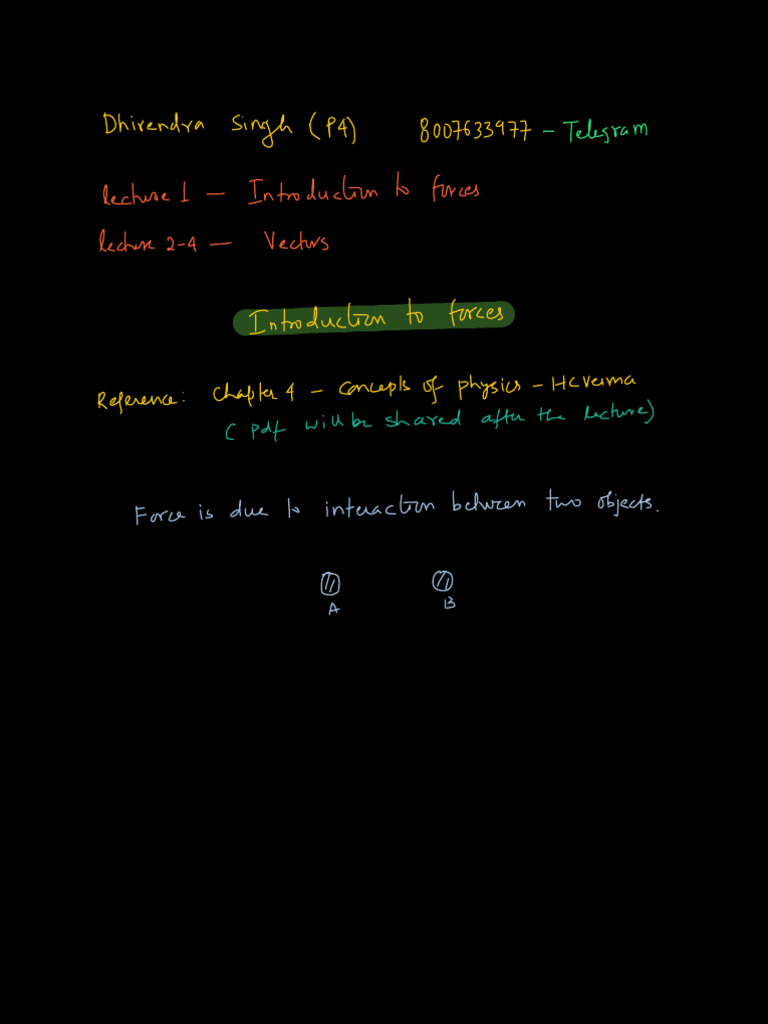 Dhirendra Singh (P4) 8007633977 - Telegram
lecture 1 — Introduction to forces
lecture 2-4 — Vectors
Introduction to forces
Reference: Chapter 4 - Concepts of physics - HC Verma
( pdf will be shared after the lecture)
Force is due to interaction between two objects.
A B